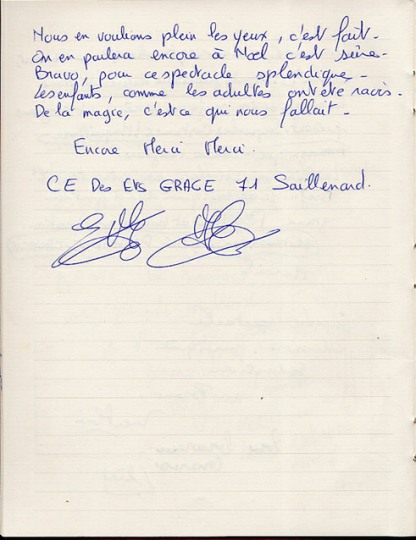 Nous en voulions plein les yeux, c'est fait.
On en parlera encore à Noël c'est sûre.
Bravo, pour ce spectacle splendique.
Les enfants, comme les adultes ont été ravis.
De la magie, c'est ce qui nous fallait.
Encore Merci Merci.
CE Des Ets GRACE 71 Saillenard.